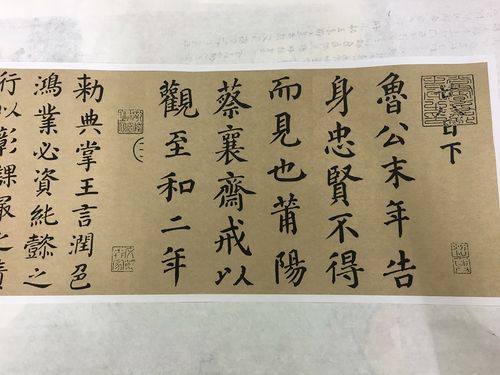 日下
魯公末年告
身忠賢不得
而見也莆陽
蔡襄齋戒以
觀至和二年
(二)
勑典掌王言潤色
鴻業必資純懿之
行以彰課最之責